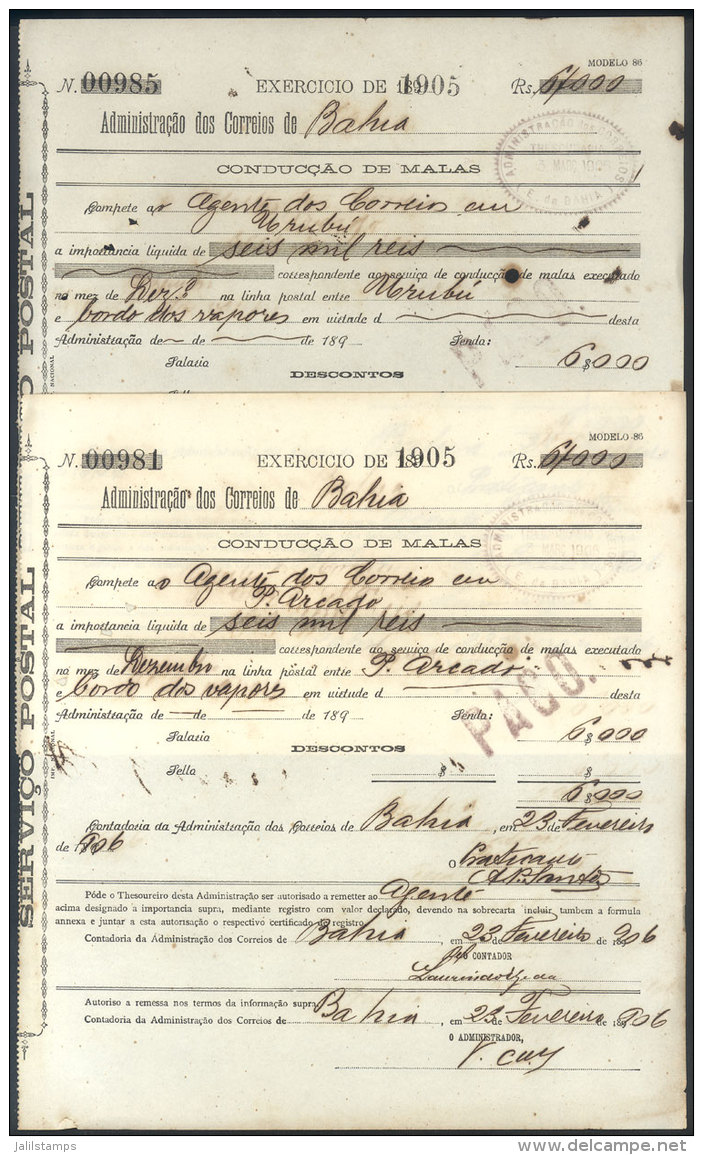 MODELO 86
N. 00985 EXERCICIO DE 1905 Rs. 6/000
Administração dos Correios de Bahia
CONDUCÇÃO DE MALAS
ADMINISTRAÇÃO DOS CORREIOS
THESOURARIA
E. da BAHIA
Compete ao Agente dos Correio em
Urubú
a importancia liquida de seis mil reis
correspondente ao serviço de conducção de malas executado
no mez de Dezº na linha postal entre Urubú
e bordo dos vapores em virtude d desta
Administração de de 189 Tendo:
Salario 6$000
DESCONTOS
POSTAL
NACIONAL
MODELO 86
N. 00981 EXERCICIO DE 1905 Rs. 6/000
Administração dos Correios de Bahia
CONDUCÇÃO DE MALAS
Compete ao Agente dos Correio em
P. Arcado
a importancia liquida de seis mil reis
correspondente ao serviço de conducção de malas executado
no mez de Dezembro na linha postal entre P. Arcado
e bordo dos vapores em virtude d desta
Administração de de 189 Tendo:
PAGO.
Salario 6$000
DESCONTOS
Sello $ $
6$000
Contadoria da Administração dos Correios de Bahia, em 23 de Fevereiro
de 1906
O
Póde o Thesoureiro desta Administração ser autorisado a remetter ao Agente
acima designado a importancia supra, mediante registro com valor declarado, devendo na sobrecarta incluir tambem a formula
annexa e juntar a esta autorisação o respectivo certificado do registro.
Contadoria da Administração dos Correios de Bahia em 23 de Fevereiro de 1906
O CONTADOR
Autoriso a remessa nos termos da informação supra.
Contadoria da Administração dos Correios de Bahia, em 23 de Fevereiro de 1906
O ADMINISTRADOR,
SERVIÇO POSTAL
IMP. NACIONAL
jalilstamps
delcampe.net